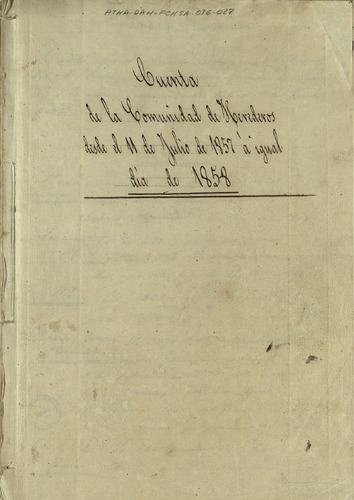 ATNA-DAH-FCHSA-076-027
Cuenta
de la Comunidad de Herederos
desde el 11 de Julio de 1857 à igual
día de 1858